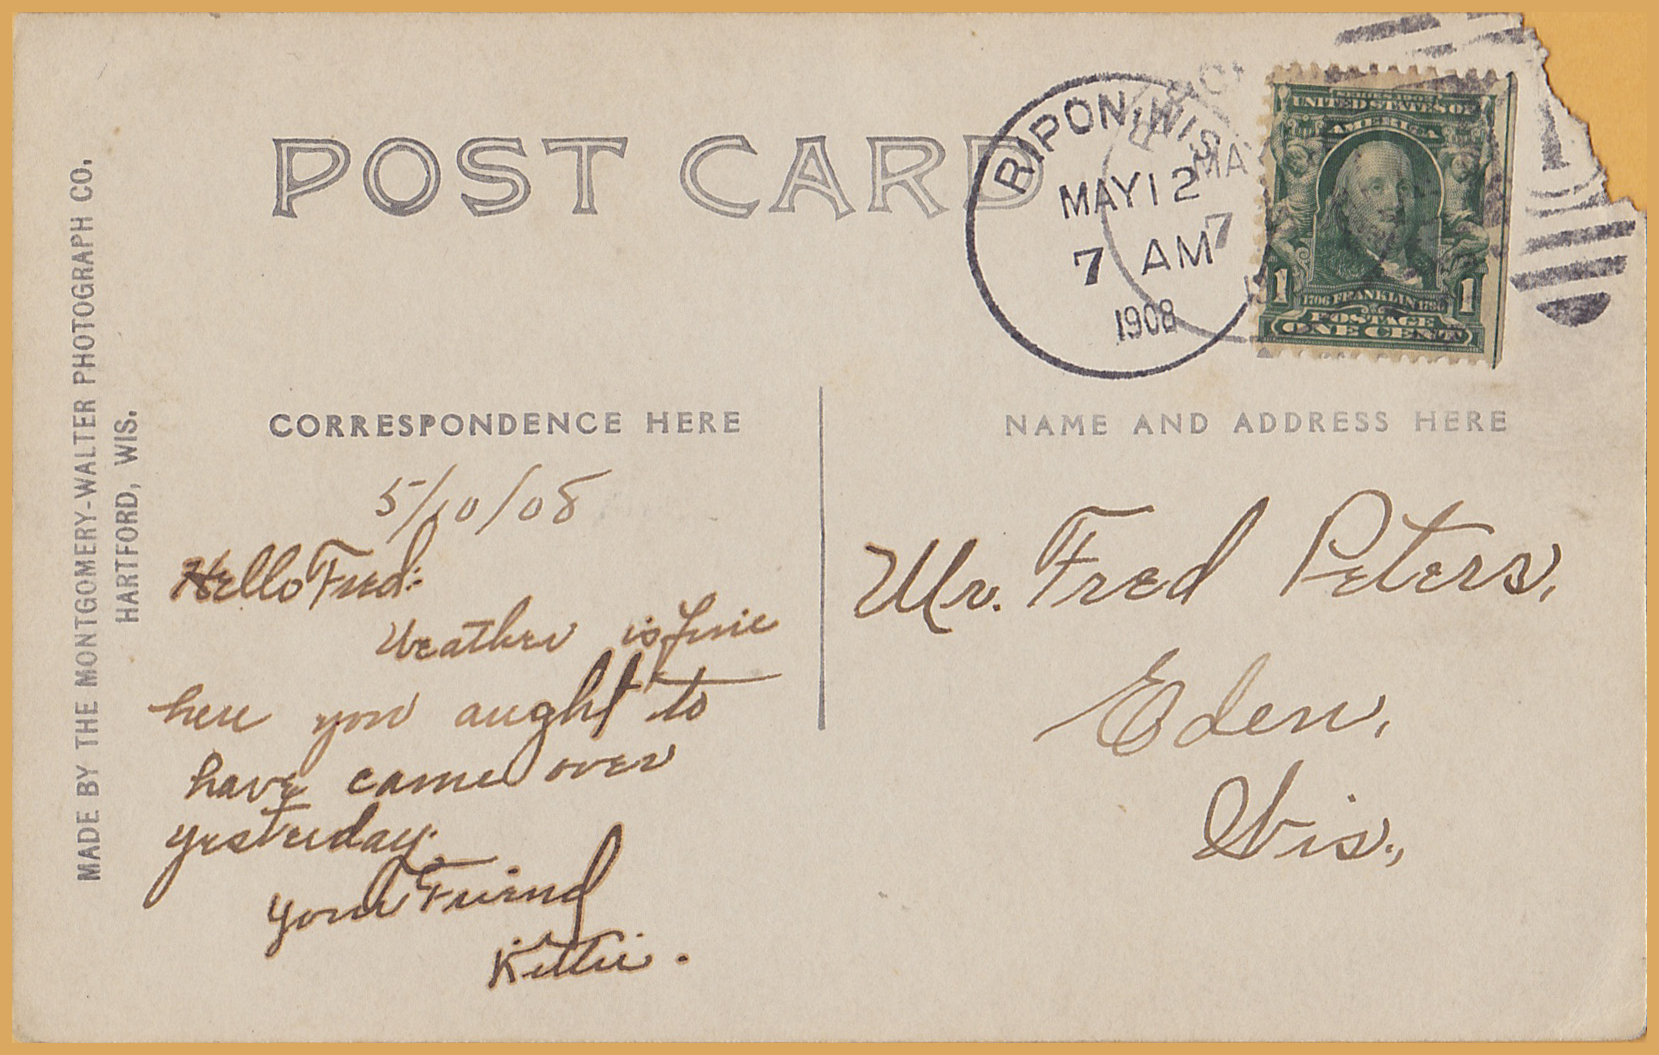 POST CARD
RIPON, WIS.
MAY 12
7 AM
1908
MAY
7
SERIES 1902
UNITED STATES OF
AMERICA
1 1706 FRANKLIN 1790 1
POSTAGE
ONE CENT
MADE BY THE MONTGOMERY-WALTER PHOTOGRAPH CO.
HARTFORD, WIS.
CORRESPONDENCE HERE
5/10/08
Hello Fred:
Weather is fine
here you aught to
have came over
yesterday.
Your Friend
Kittie.
NAME AND ADDRESS HERE
Mr. Fred Peters,
Eden,
Wis.,